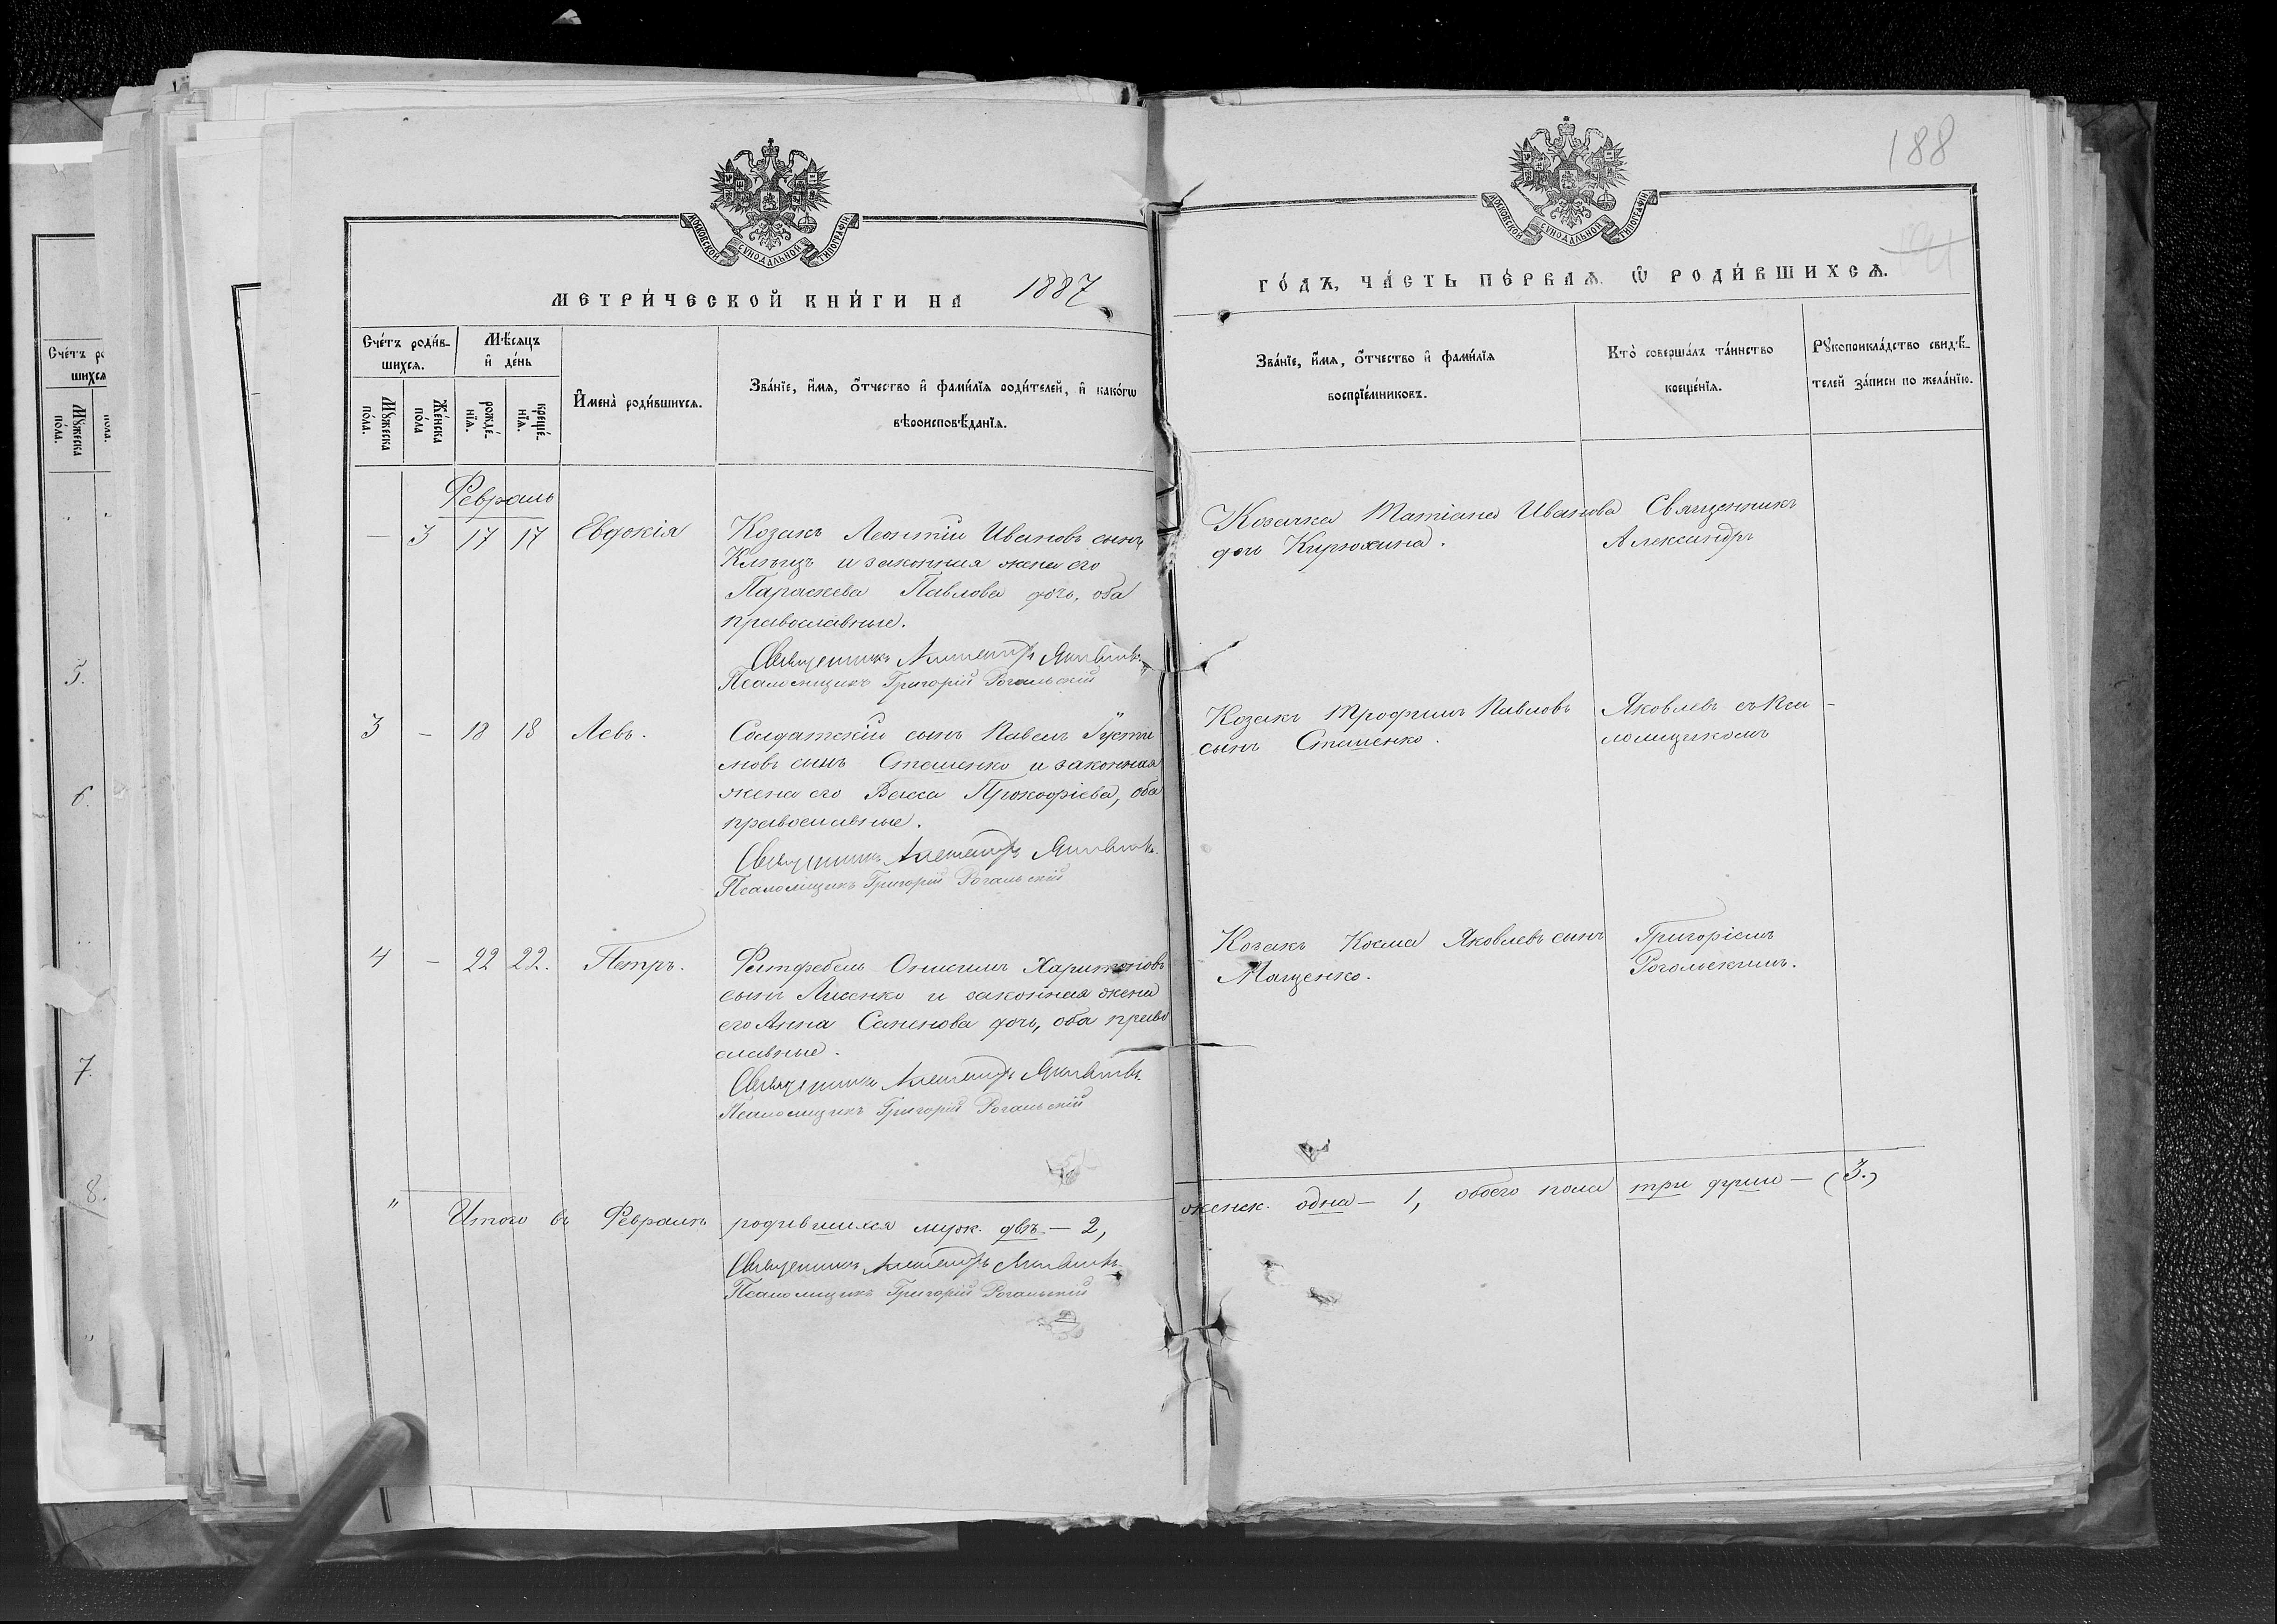 188
МОСКОВСКОЙ СѴНОДАЛЬНОЙ ТИПОГРАФІИ
МОСКОВСКОЙ СѴНОДАЛЬНОЙ ТИПОГРАФІИ
МЕТРИ́ЧЕСКОЙ КНИ́ГИ НА 1887
ГО́ДЪ, ЧА́СТЬ ПЕ́РВАѦ Ѡ҆ РОДИ́ВШИХСѦ.
Сче́тъ роди́в-
шихсѧ.
Мѣ́сяцъ
и҆ де́нь
Мꙋ́жеска
по́ла.
Же́нска
по́ла
рожде́-
нїѧ.
креще́-
нїѧ.
И҆мена̀ роди́вшихсѧ.
Зва́нїе, и҆́мѧ, ѻ҆́тчество и҆ фами́лїѧ роди́телей, и҆ како́гѡ
вѣроисповѣ́данїѧ.
Зва́нїе, и҆́мѧ, ѻ҆́тчество и҆ фами́лїѧ
воспрїе́мниковъ.
Кто̀ соверша́лъ та́инство
креще́нїѧ.
Рꙋкоприкла́дство свидѣ́-
телей за́писи по жела́нїю.
Февраль
— 3 17 17 Евдокія
Козакъ Леонтій Ивановъ сынъ
и законная жена его
Параскева Павлова дочь, оба
православные.
Священникъ Александръ Яковлевъ
Псаломщикъ Григорій Рогальскій
Козачка Татіана Иванова
дочь Кирюхина.
Священникъ
Александръ
3 — 18 18 Левъ.
Солдатскій сынъ Павелъ Густи
новъ сынъ Сташенко и законная
жена его Васса Прокофіева, оба
православные.
Священникъ Александръ Яковлевъ.
Псаломщикъ Григорій Рогальскій
Козакъ Трофимъ Павловъ
сынъ Сташенко.
Яковлевъ съ Пса-
ломщикомъ
4 — 22 22. Петръ.
Фельдфебель Онисимъ Харитоновъ
сынъ Лисенко и законная жена
его Анна Семенова дочь, оба право
славные.
Священникъ Александръ Яковлевъ.
Псаломщикъ Григорій Рогальскій
Козакъ Косма Яковлевъ сынъ
Мащенко.
Григоріемъ
Рогальскимъ.
" Итого въ Февралѣ родившихся муж. двѣ — 2,
женск. одна — 1, обоего пола три души — (3.)
Священникъ Александръ Яковлевъ
Псаломщикъ Григорій Рогальскій
Сче́тъ ро
шихсѧ
Мꙋ́жеска
по́ла.
5.
6.
7.
8.